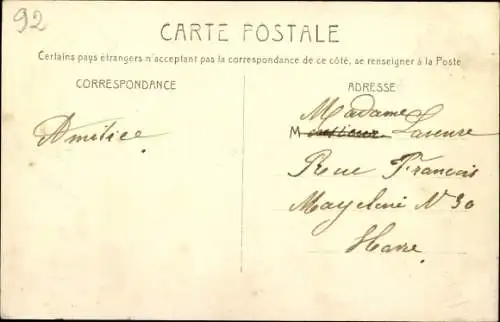 92
CARTE POSTALE
Certains pays étrangers n'acceptant pas la correspondance de ce côté, se renseigner à la Poste
CORRESPONDANCE
ADRESSE
Amélice
Madame
M Laveure
Rue Francois
Mayeline N 30
Havre